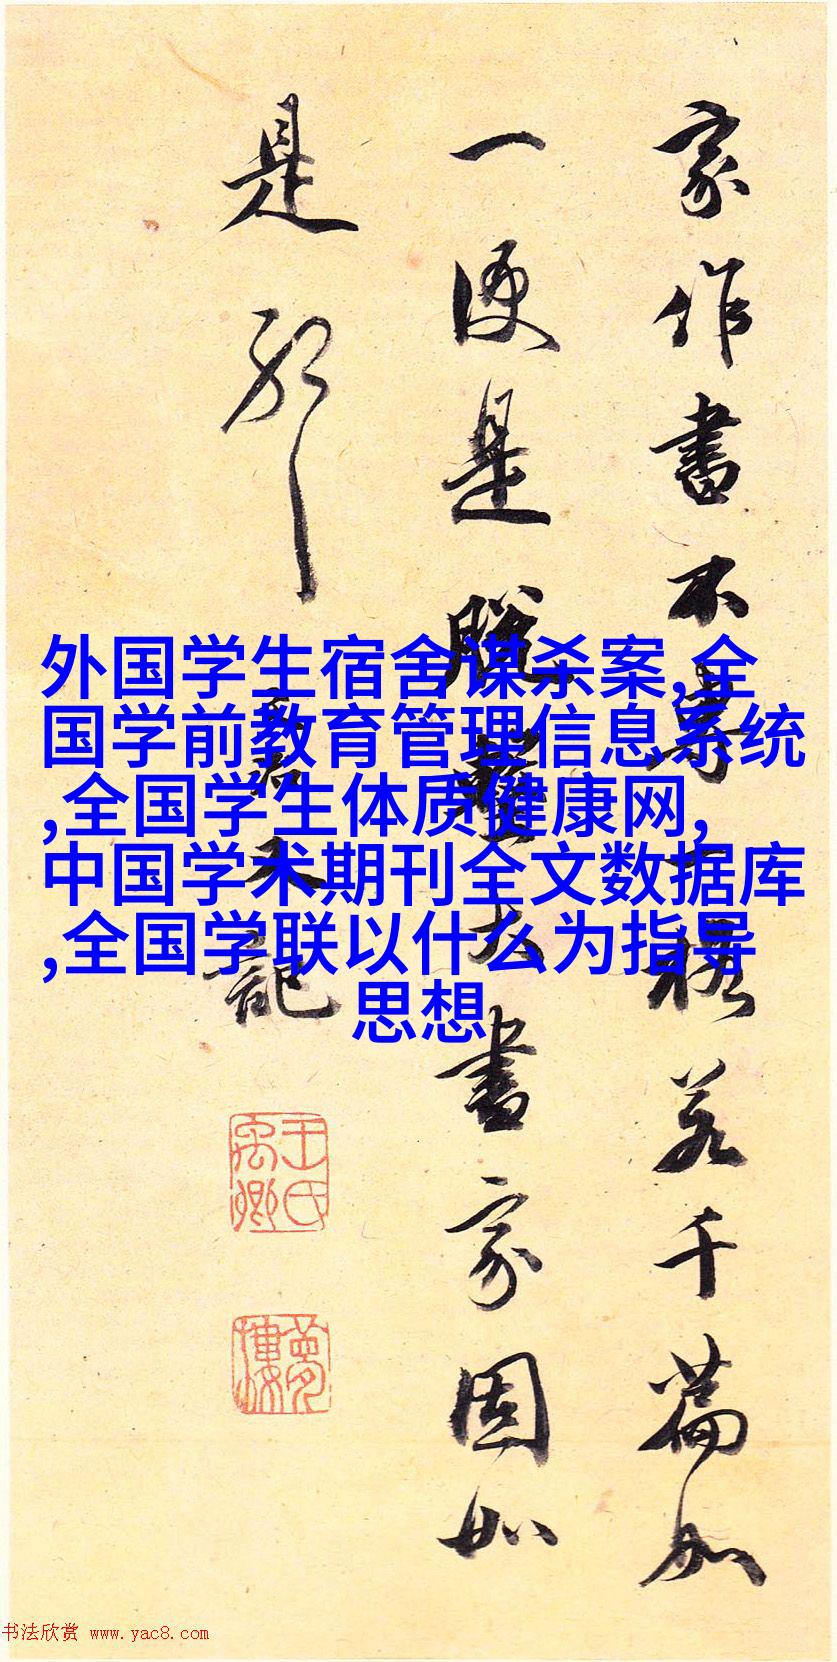 家作書不專一格若千篇如
一便是大書家固如
是耶
記
王氏禹卿
夢樓
外国学生宿舍谋杀案,全
国学前教育管理信息系统
,全国学生体质健康网,
中国学术期刊全文数据库
,全国学联以什么为指导
思想
书法欣赏 www.yac8.com